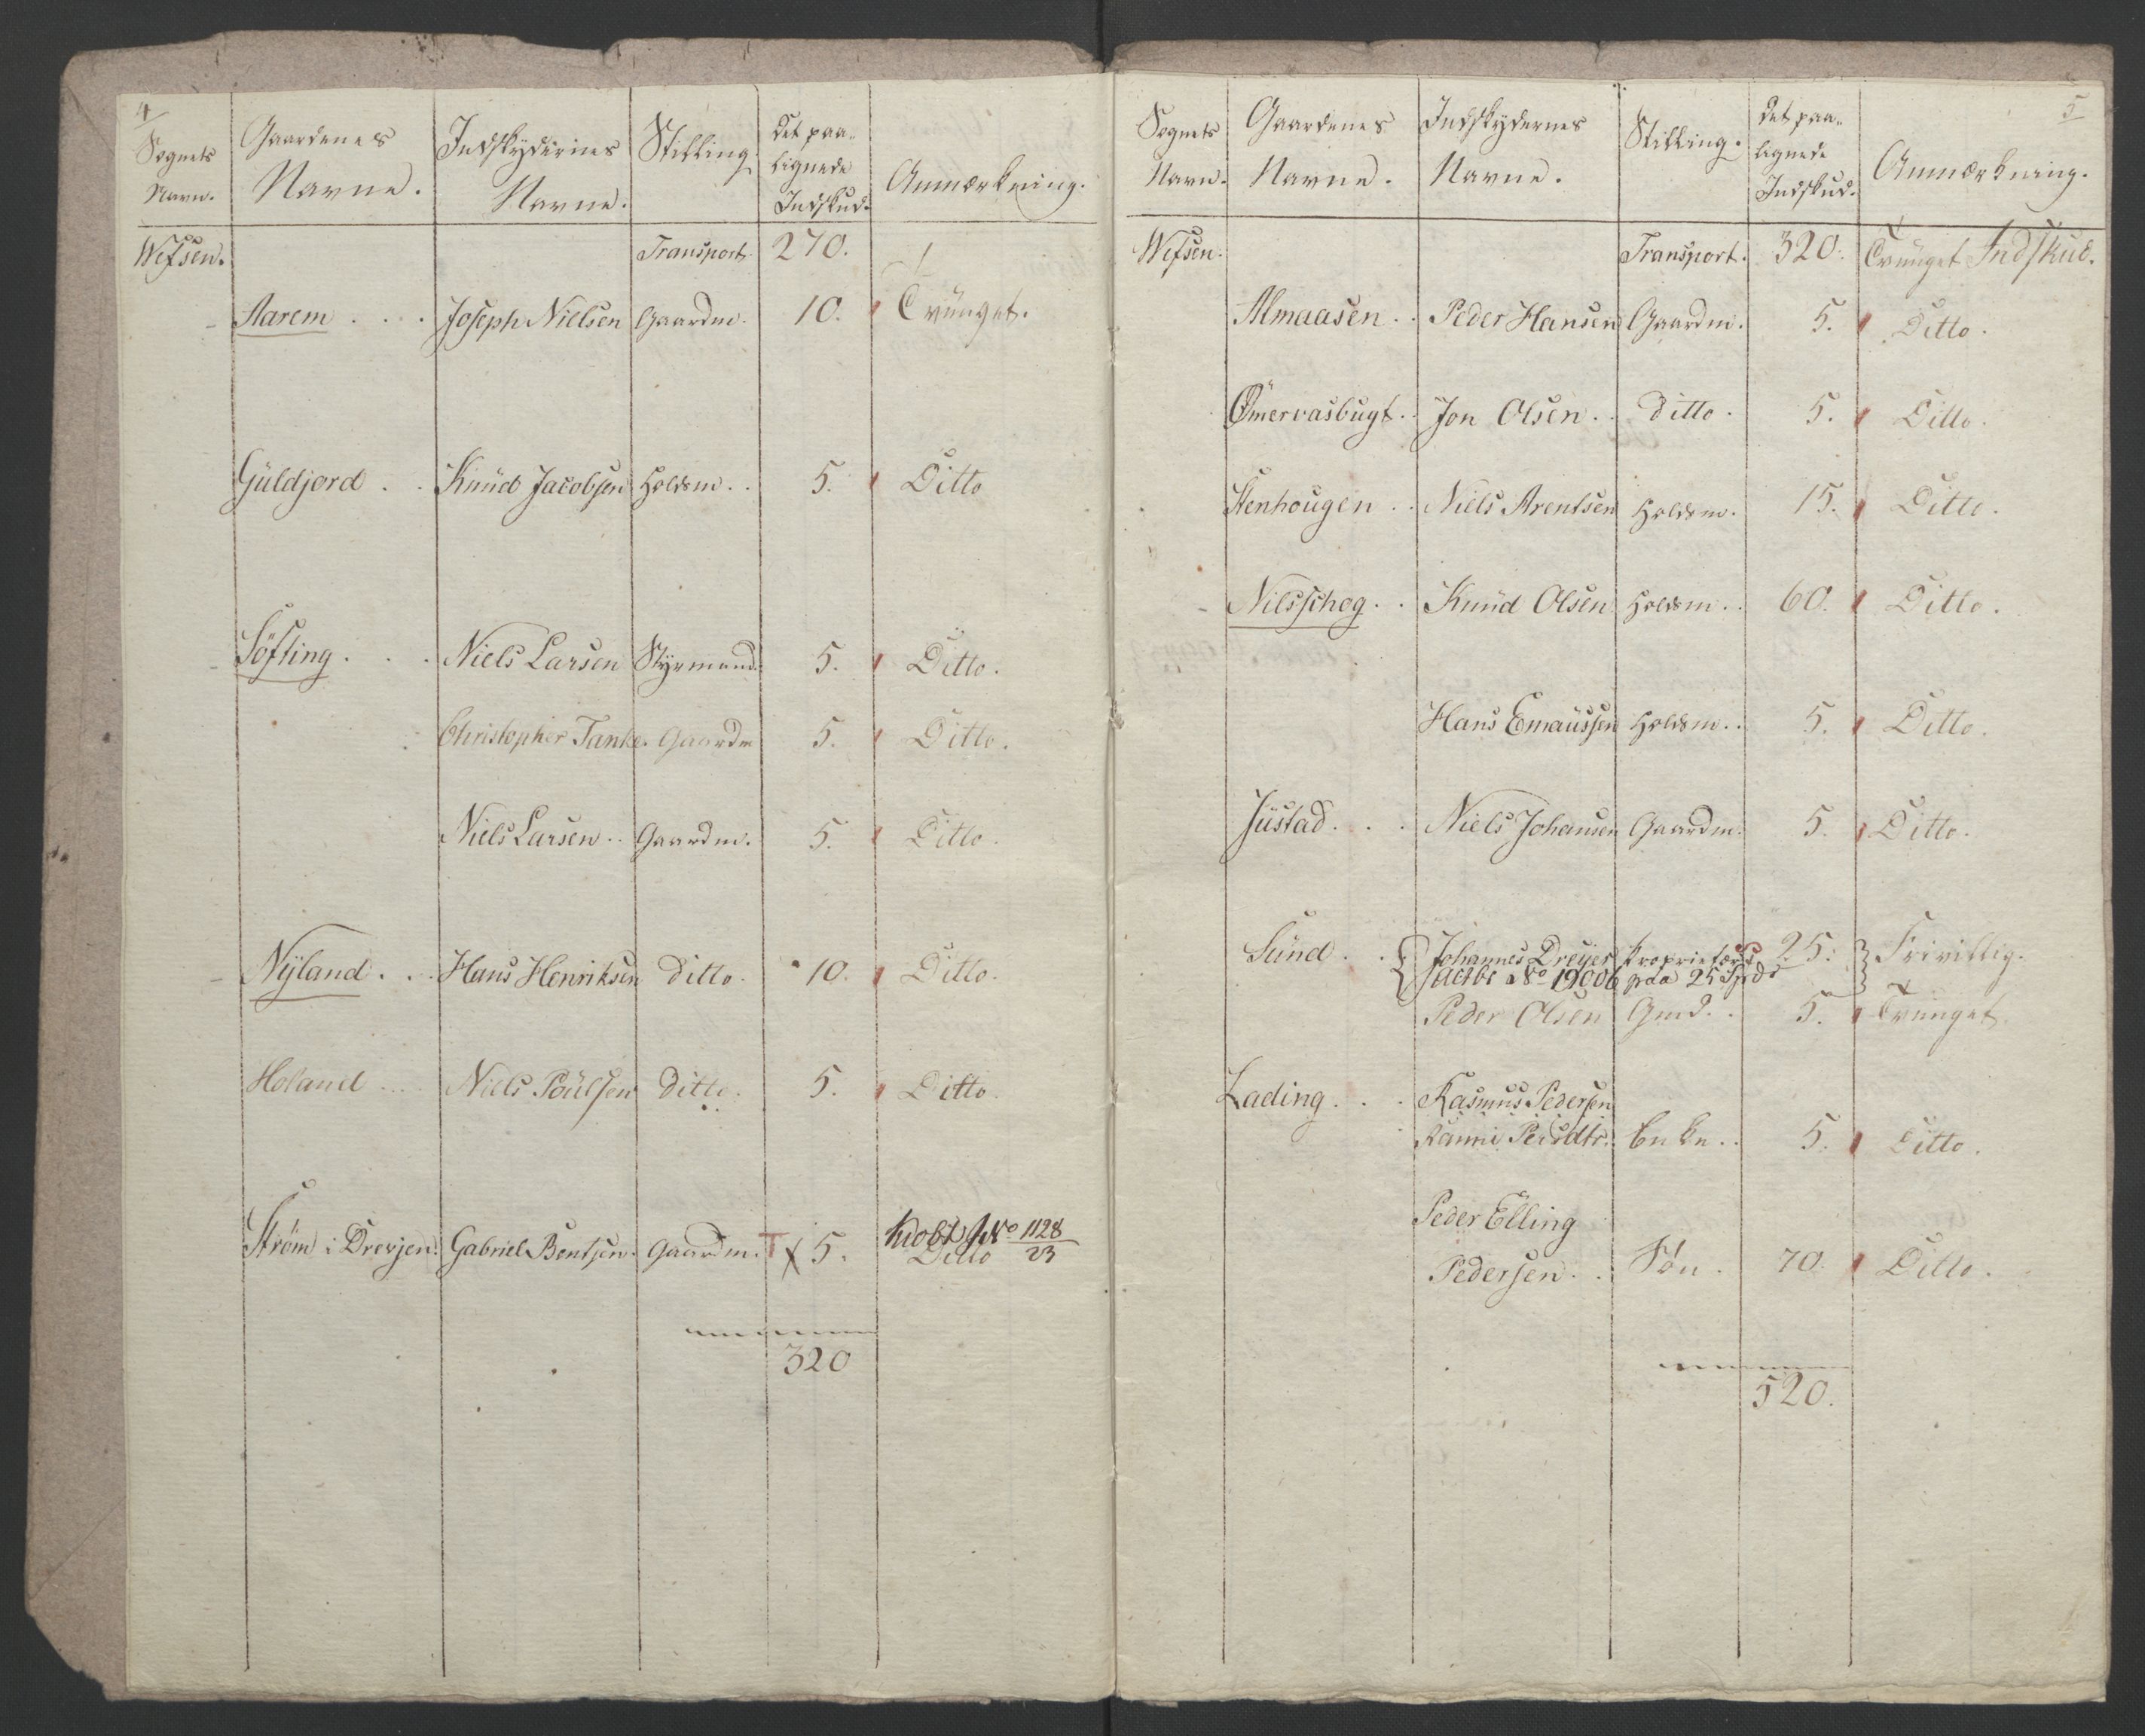 4
Sognets Navn. Gaardenes Navne. Indskydernes Navne. Stilling. Det paalignede Indskud. Anmærkning.
Wefsen. Transport 270.
Aarem . . . Joseph Nielsen Gaardm. 10. Tvünget.
Güldjord . . Knüd Jacobsen Holdsm. . 5. Ditto
Söfting . . . Niels Larsen Styrmand. 5. Ditto.
Christopher Tanke. Gaardm 5. Ditto.
Niels Larsen . . Gaardm. 5. Ditto.
Nÿland . . . Hans Henriksen ditto. 10. Ditto.
Holand .... Niels Poülsen ditto. 5. Ditto.
Ström i Drevjen. Gabriel Bentsen. Gaardm. T x 5. Kiøbt No 1128/23
Ditto
320
5
Sognets Navn. Gaardenes Navne. Indskydernes Navne. Stilling. Det paalignede Indskud. Anmærkning.
Wefsen. Transport. 320. Tvünget Indskud.
Almaasen . . Peder Hansen Gaardm. 5. Ditto.
Ömervasbugt . . Jon Olsen . . ditto. 5. Ditto.
Stenhougen . . Niels Arentsen Holdsm. 15. Ditto.
Nilsschog . . Knüd Olsen Holdsm. . 60. Ditto.
Hans Emaüssen Holdsm. . 5. Ditto.
Jüstad . . . Niels Johansen Gaardm. 5. Ditto.
Sünd . . Johannes Dreyer Proprietær 25. Frivillig.
No 19006 paa 25 Spd
Peder Olsen Gmd. . 5. Tvunget.
Lading . . . Rasmus Pedersen
Enke . . 5. Ditto.
Peder Elling
Pedersen . . Søn. 70. Ditto.
520.